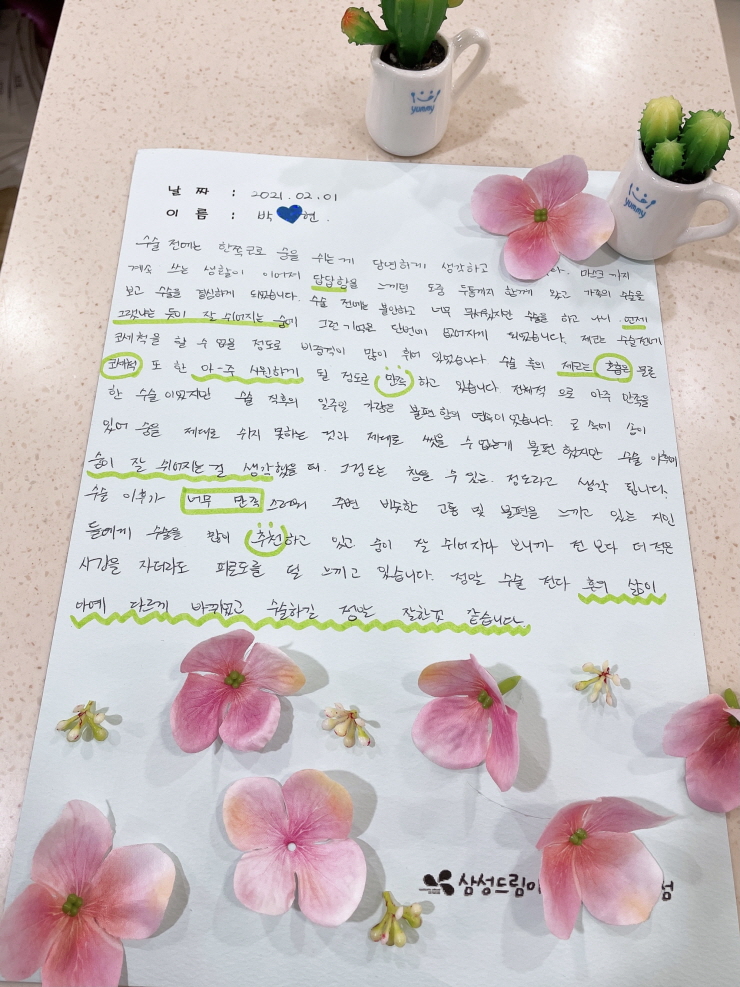 yummy
yummy
날 짜 : 2021.02.01
이 름 : 박 현.
수술 전에는 한쪽코로 숨을 쉬는게 당연하게 생각하고 다. 마스크까지
계속 쓰는 생활이 이어져 답답함을 느끼면 도중 두통까지 함께 왔고 가족의 수술을
보고 수술을 결심하게 되었습니다. 수술 전에는 불안하고 너무 무서웠지만 수술을 하고 나니 언제
그랬냐는 듯이 잘 쉬어지는 숨에 그런 기억은 단번에 없어지게 되었습니다. 저는 수술전에
코세척을 할 수 없을 정도로 비중격이 많이 휘어 있었습니다 수술 후의 제로는 호흡은 물론
코세척 또 한 아-주 시원하게 될 정도로 만족하고 있습니다. 전체적 으로 아주 만족을
한 수술이었지만 수술 직후의 일주일 가량은 불편함의 연속이었습니다. 코 속에 솜이
있어 숨을 제대로 쉬지 못하는 것과 제대로 씻을 수 없는게 불편 했지만 수술 이후에
숨이 잘 쉬어지는걸 생각했을 때. 그정도는 참을 수 있는. 정도라고 생각 됩니다.
수술 이후가 너무 만족 스러워서 주변 비슷한 고통 및 불편을 느끼고 있는 지인
들에게 수술을 많이 추천하고 있고 숨이 잘 쉬어지다 보니까 전 보다 더 적은
시간을 자더라도 피로도를 덜 느끼고 있습니다. 정말 수술 전과 후의 삶이
아예 다르게 바뀌었고 수술하길 정말 잘한것 같습니다
삼성드림이 점